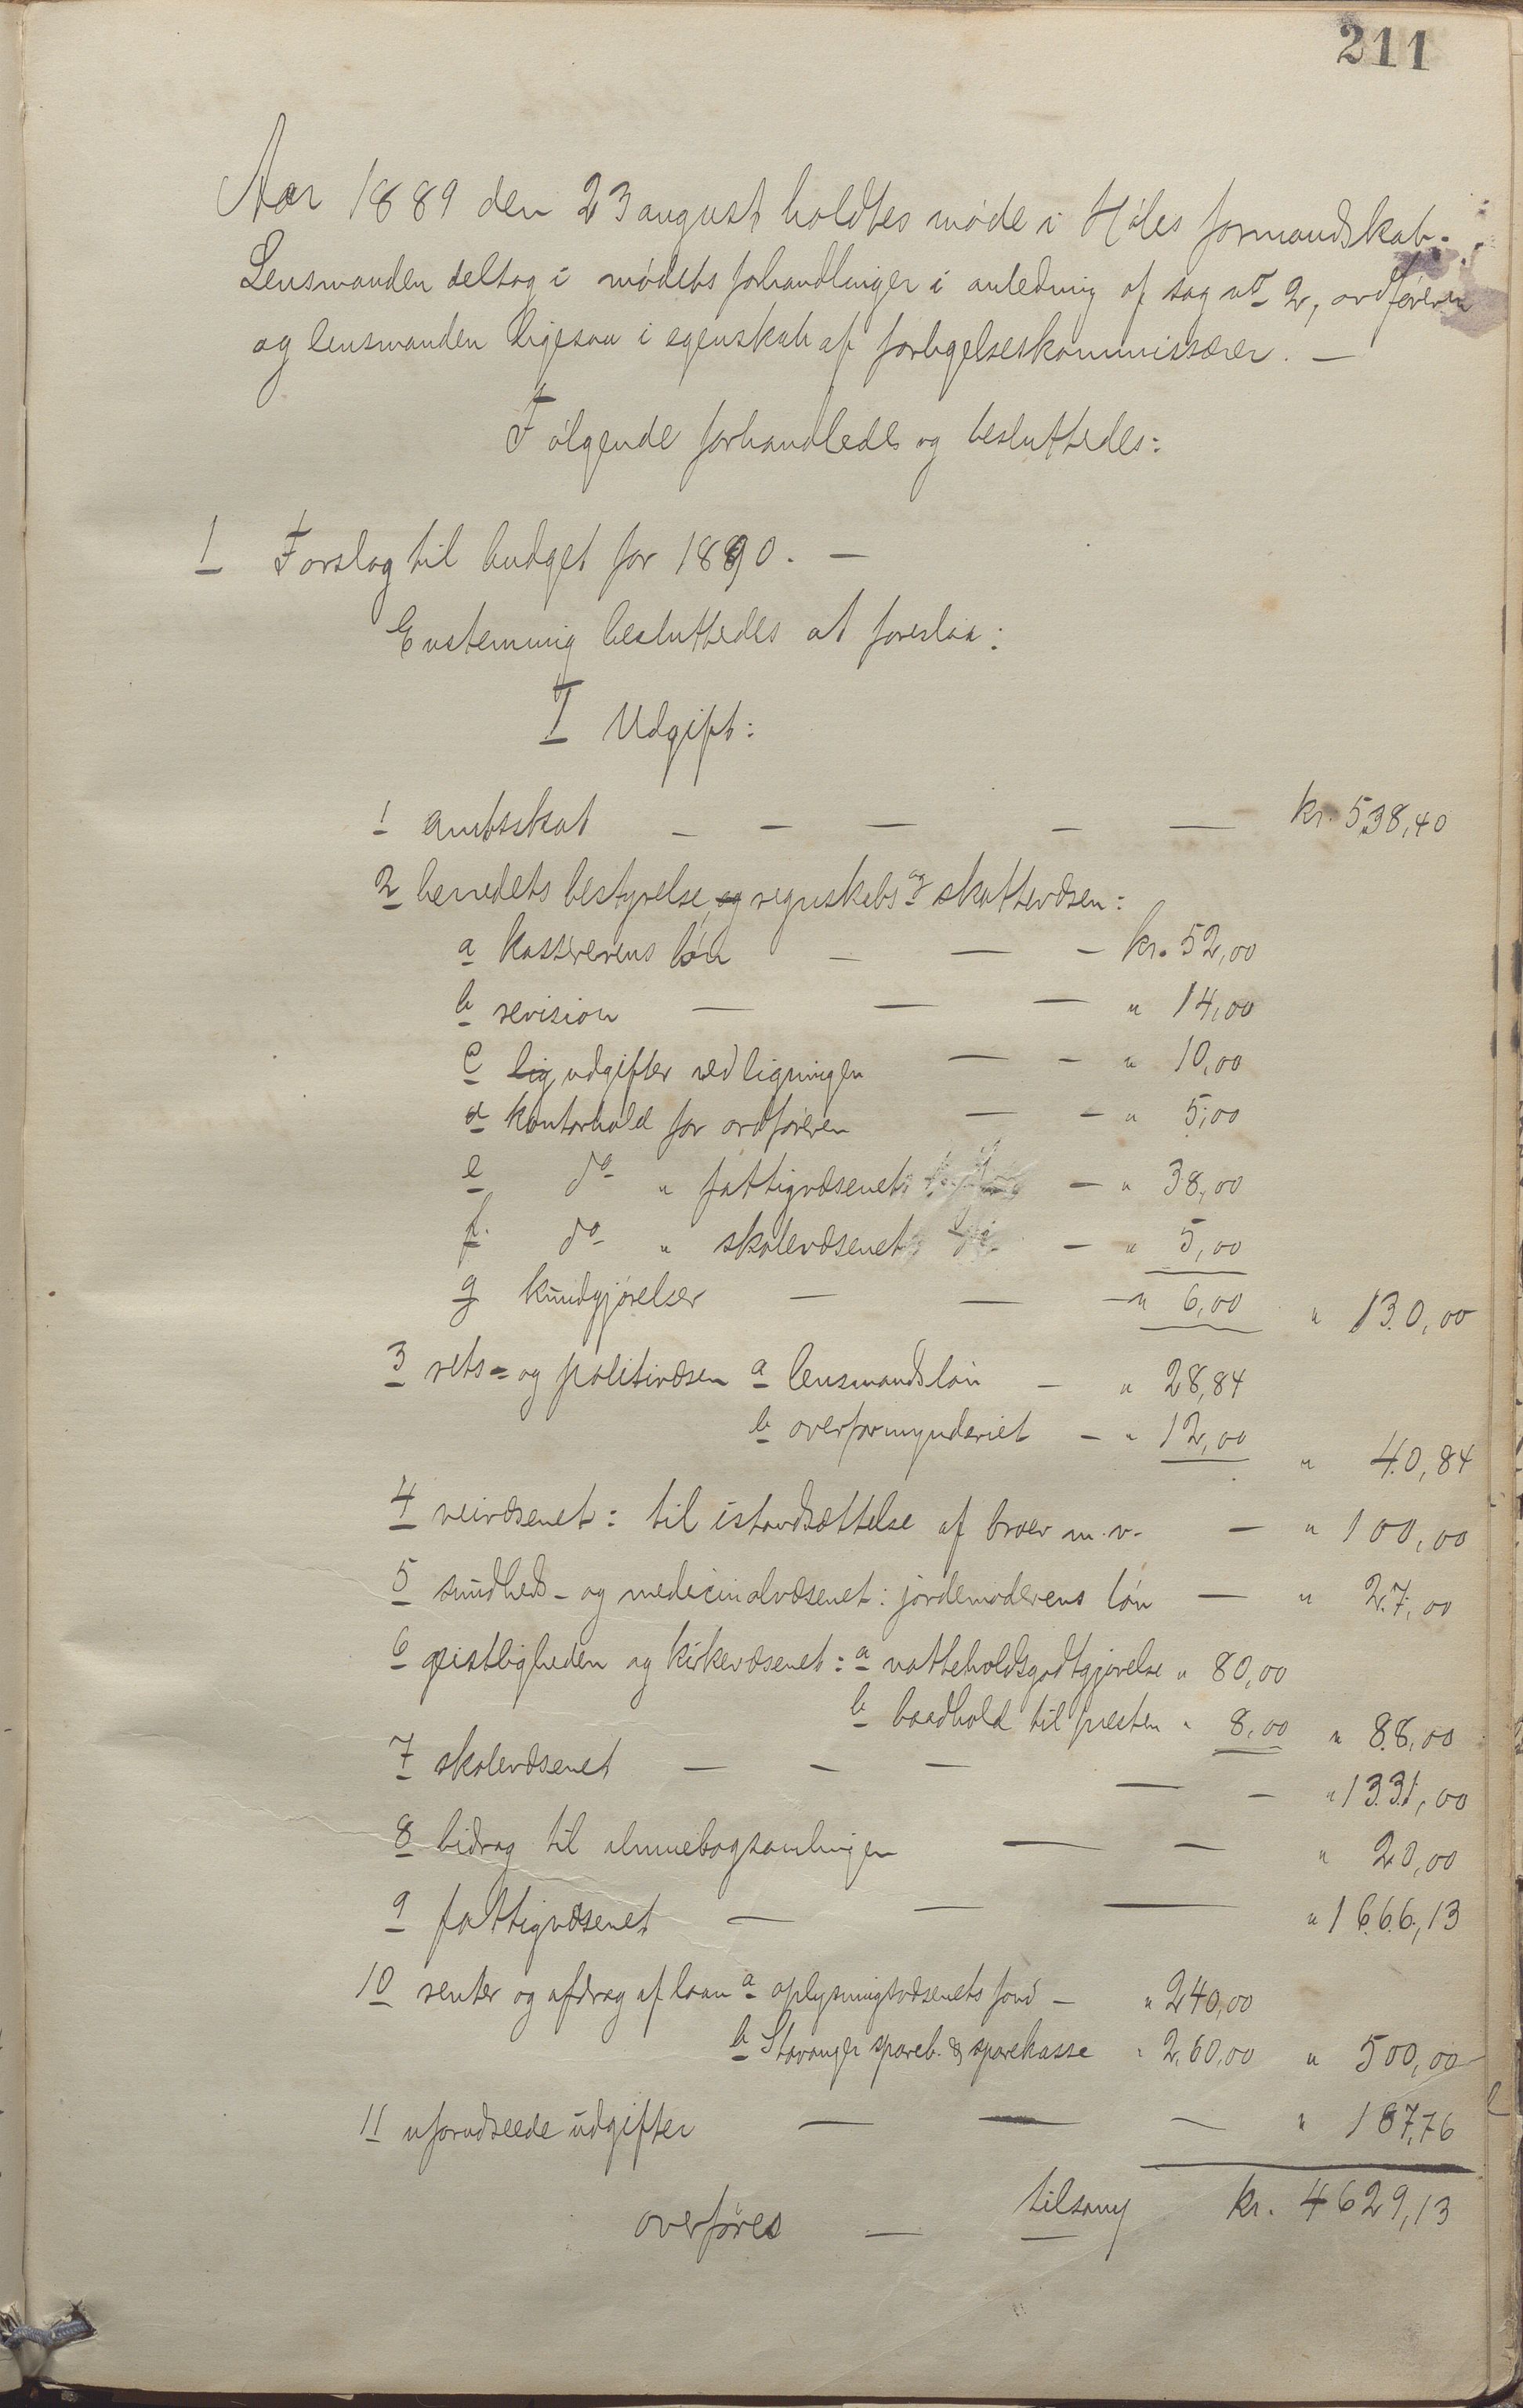 211
Aar 1889 den 23 august holdtes møde i Høles formandskab.
Lensmanden deltog i mødets forhandlinger i anledning af sag no 2, ordføreren
og lensmanden ligesaa i egenskab af forligelseskommissærer. —
Følgende forhandledes og besluttedes:
1 Forslag til budget for 1890. —
Enstemmig besluttedes at foreslaa:
I Udgift:
1 amtsskat — — — — — kr. 538,40
2 herredets bestyrelse, og regnskabs og skattevæsen:
a kassererens løn — — — kr. 52,00
b revision — — — " 14,00
c lig udgifter ved ligningen — — " 10,00
d kontorhold for ordføreren — — " 5,00
e do " fattigvæsenets — " 38,00
f. do " skolevæsenet — " 5,00
g kundgjørelser — — — " 6,00 " 130,00
3 rets- og politivæsen a lensmandsløn — " 28,84
b overformynderiet — " 12,00 " 40,84
4 veivæsenet: til istandsættelse af broer m.v. — " 100,00
5 sundheds- og medicinalvæsenet: jordemoderens løn — " 27,00
6 geistligheden og kirkevæsenet: a natteholdsgodtgjørelse " 80,00
b baadhold til presten " 8,00 " 88,00
7 skolevæsenet — — — — — " 1331,00
8 bidrag til almuebogsamlingen — — " 20,00
9 fattigvæsenet — — — " 1666,13
10 renter og afdrag af laan a oplysningsvæsenets fond — " 240,00
b Stavanger spareb. & sparekasse " 260,00 " 500,00
11 uforudseede udgifter — — — " 187,76
tilsamm kr. 4629,13
overføres — —